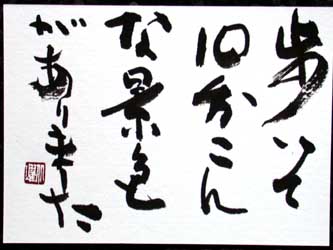 歩いて
10分こん
な景色
がありました